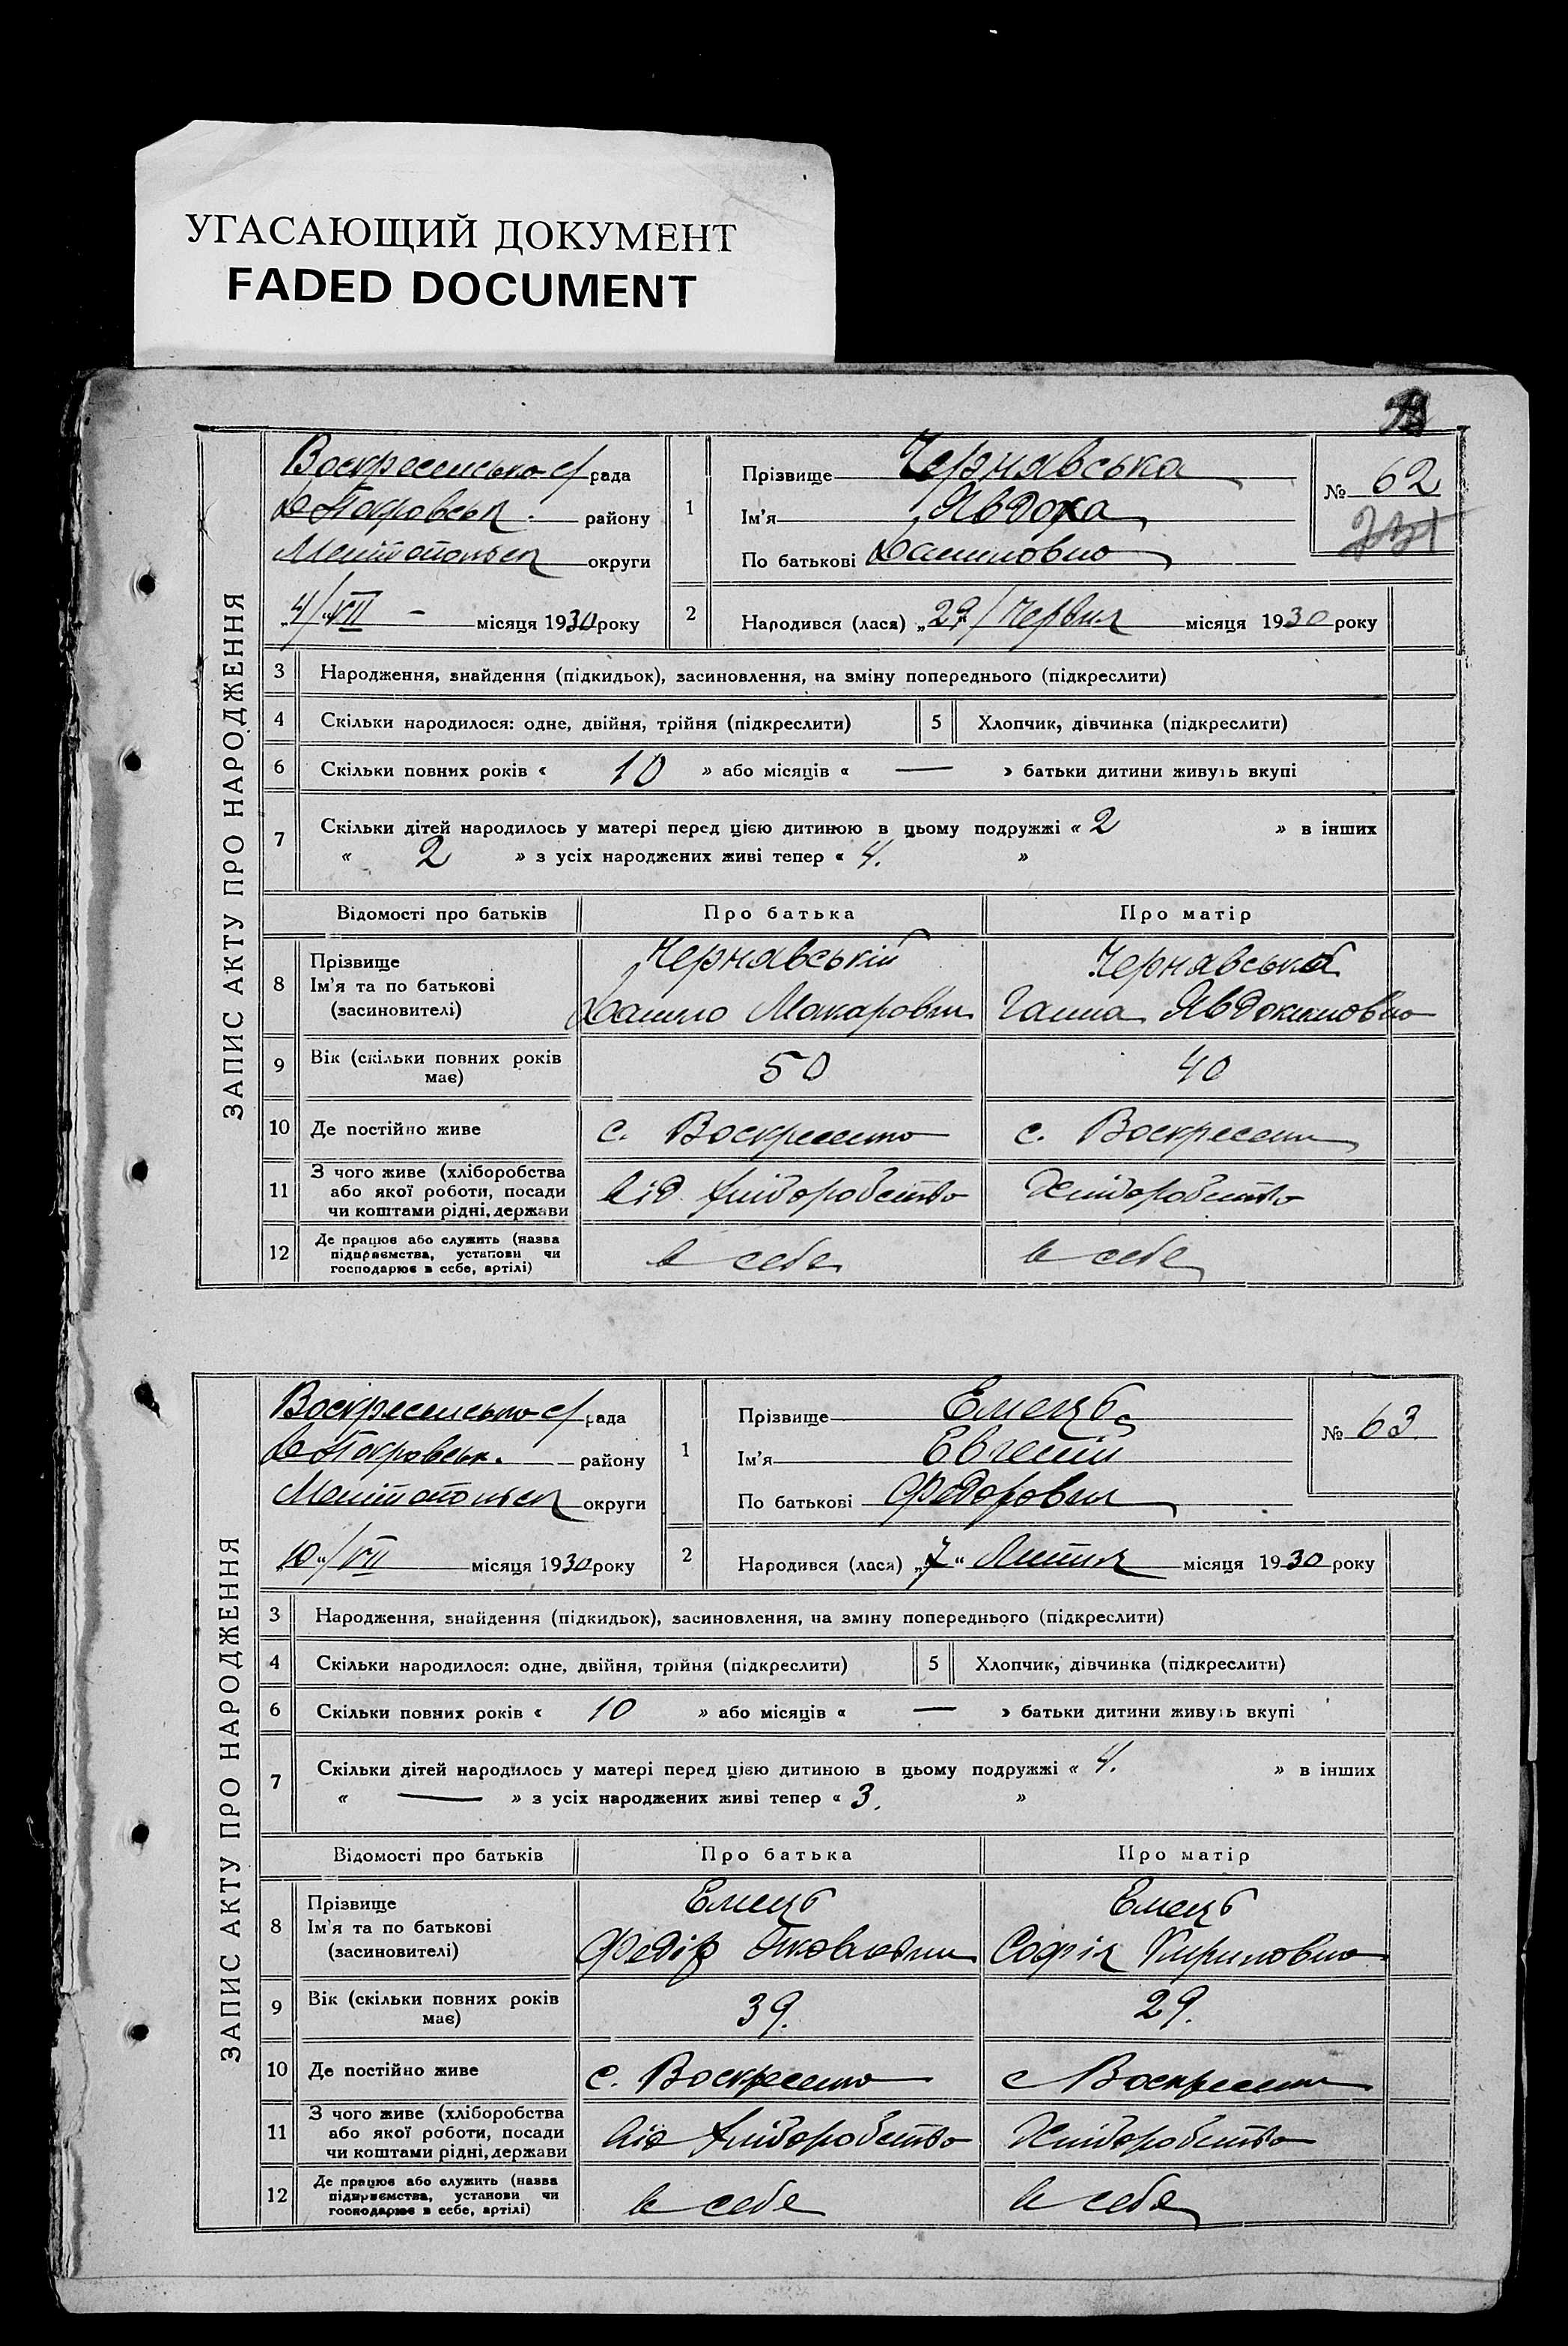 УГАСАЮЩИЙ ДОКУМЕНТ
FADED DOCUMENT
ЗАПИС АКТУ ПРО НАРОДЖЕННЯ
Воскресенсько с/рада
В Покровськ. району
Мелітопольск округи
„4/VII — місяця 1930 року
1
Прізвище Чернявська
Ім'я Явдоха
По батькові Даниловно
№ 62
2
Народився (лася) „29/Червня місяця 1930 року
3 Народження, знайдення (підкидьок), засиновлення, на зміну попереднього (підкреслити)
4 Скільки народилося: одне, двійня, трійня (підкреслити) 5 Хлопчик, дівчинка (підкреслити)
6 Скільки повних років « 10 » або місяців « — » батьки дитини живуть вкупі
7 Скільки дітей народилось у матері перед цією дитиною в цьому подружжі « 2 » в інших
« 2 » з усіх народжених живі тепер « 4. »
Відомості про батьків Про батька Про матір
8 Прізвище
Ім'я та по батькові
(засиновителі)
Чернявській
Данило Макарович
Чернявська
Ганна Явдокимовно
9 Вік (скільки повних років
має) 50 40
10 Де постійно живе с. Воскресенко с. Воскресенк
11 З чого живе (хліборобства
або якої роботи, посади
чи коштами рідні, держави
від хлідоробство Хлідоробство
12 Де працює або служить (назва
підприємства, установи чи
господарює в себе, артілі)
в себе в себе
ЗАПИС АКТУ ПРО НАРОДЖЕННЯ
Воскресенсько с/рада
В Покровськ. району
Мелітопольск округи
„10“/VII місяця 1930 року
1
Прізвище Емець
Ім'я Евгеній
По батькові Федорович
№ 63
2
Народився (лася) „7“ Липня місяця 1930 року
3 Народження, знайдення (підкидьок), засиновлення, на зміну попереднього (підкреслити)
4 Скільки народилося: одне, двійня, трійня (підкреслити) 5 Хлопчик, дівчинка (підкреслити)
6 Скільки повних років « 10 » або місяців « — » батьки дитини живуть вкупі
7 Скільки дітей народилось у матері перед цією дитиною в цьому подружжі « 4. » в інших
« — » з усіх народжених живі тепер « 3. »
Відомості про батьків Про батька Про матір
8 Прізвище
Ім'я та по батькові
(засиновителі)
Емець
Федір Яковлевич
Емець
Софія Кириловно
9 Вік (скільки повних років
має) 39. 29.
10 Де постійно живе с. Воскресенко с Воскресенк
11 З чого живе (хліборобства
або якої роботи, посади
чи коштами рідні, держави
від хлідоробство Хлідоробство
12 Де працює або служить (назва
підприємства, установи чи
господарює в себе, артілі)
в себе в себе